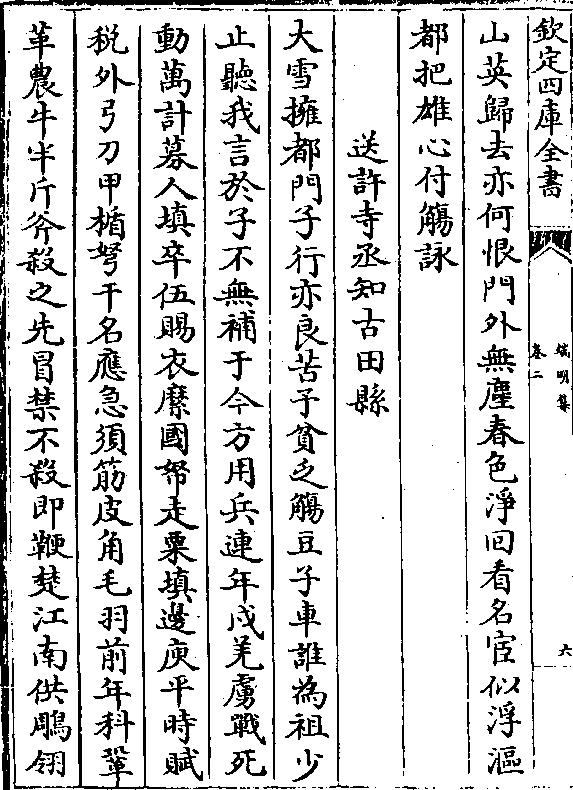 欽定四庫全書
端明集
卷二
六
山英歸去亦何恨門外無塵春色淨回看名宦似浮漚
都把雄心付觴詠
送許寺丞知古田縣
大雪擁都門子行亦良苦子貧乏觴豆子車誰為祖少
止聽我言於子不無補于今方用兵連年戍羌虜戰死
動萬計募人填卒伍賜衣縻國帑走粟填邊庾平時賦
稅外弓刀甲楯弩千名應急須筋皮角毛羽前年科鞏
革農牛半斤斧殺之先冒禁不殺即鞭楚江南供鵰翎